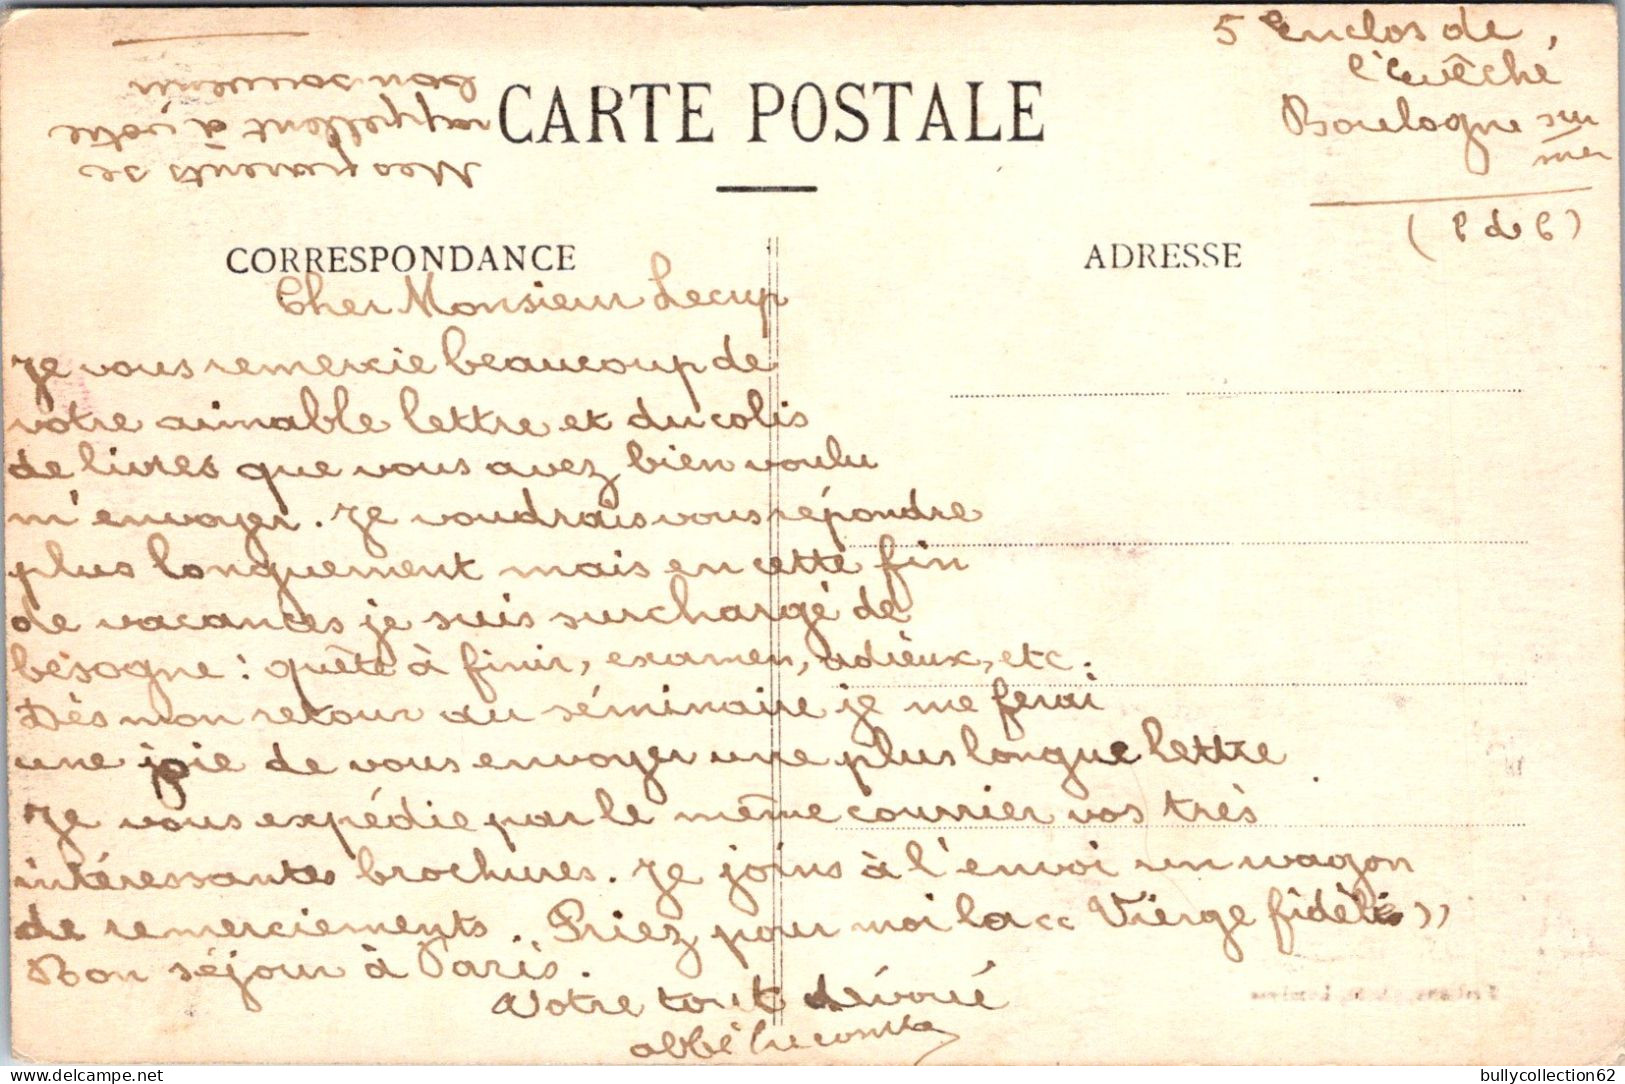 5 Enclos de
l'Evêché
Boulogne sur
mer
(P de C)
CARTE POSTALE
Mes parents se
rappellent à votre
bon souvenir
CORRESPONDANCE
ADRESSE
Cher Monsieur Lecup
Je vous remercie beaucoup de
votre aimable lettre et du colis
de livres que vous avez bien voulu
m'envoyer. Je voudrais vous répondre
plus longuement mais en cette fin
de vacances je suis surchargé de
bésogne : quête à finir, examen, adieux, etc.
Dès mon retour au séminaire je me ferai
une joie de vous envoyer une plus longue lettre
Je vous expédie par le même courrier vos très
intéressantes brochures. Je joins à l'envoi un wagon
de remerciements. Priez pour moi la « Vierge fidèle »
Bon séjour à Paris.
Votre tout dévoué
abbé Lecomte
bullycollection62